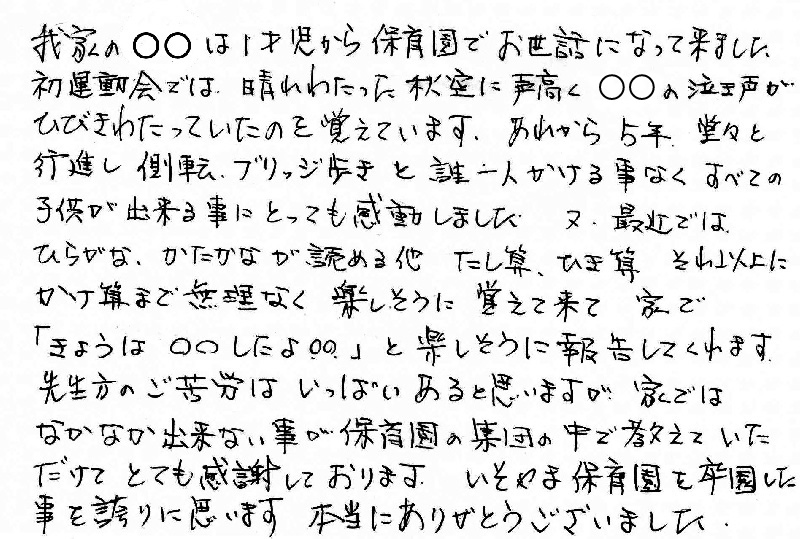 我家の〇〇は1才児から保育園でお世話になって来ました
初運動会では、晴れわたった秋空に声高く〇〇の泣き声が
ひびきわたっていたのを覚えています。あれから5年、堂々と
行進し側転、ブリッジ歩きと誰一人かける事なくすべての
子供が出来る事にとっても感動しました 又、最近では
ひらがな、かたかなが読める他 たし算、ひき算 それ以上に
かけ算まで無理なく楽しそうに覚えて来て 家で
「きょうは 〇〇したよ〇〇。」と楽しそうに報告してくれます。
先生方のご苦労はいっぱいあると思いますが 家では
なかなか出来ない事が保育園の集団の中で教えていた
だけてとても感謝しております。 いそやま保育園を卒園した
事を誇りに思います 本当にありがとうございました.